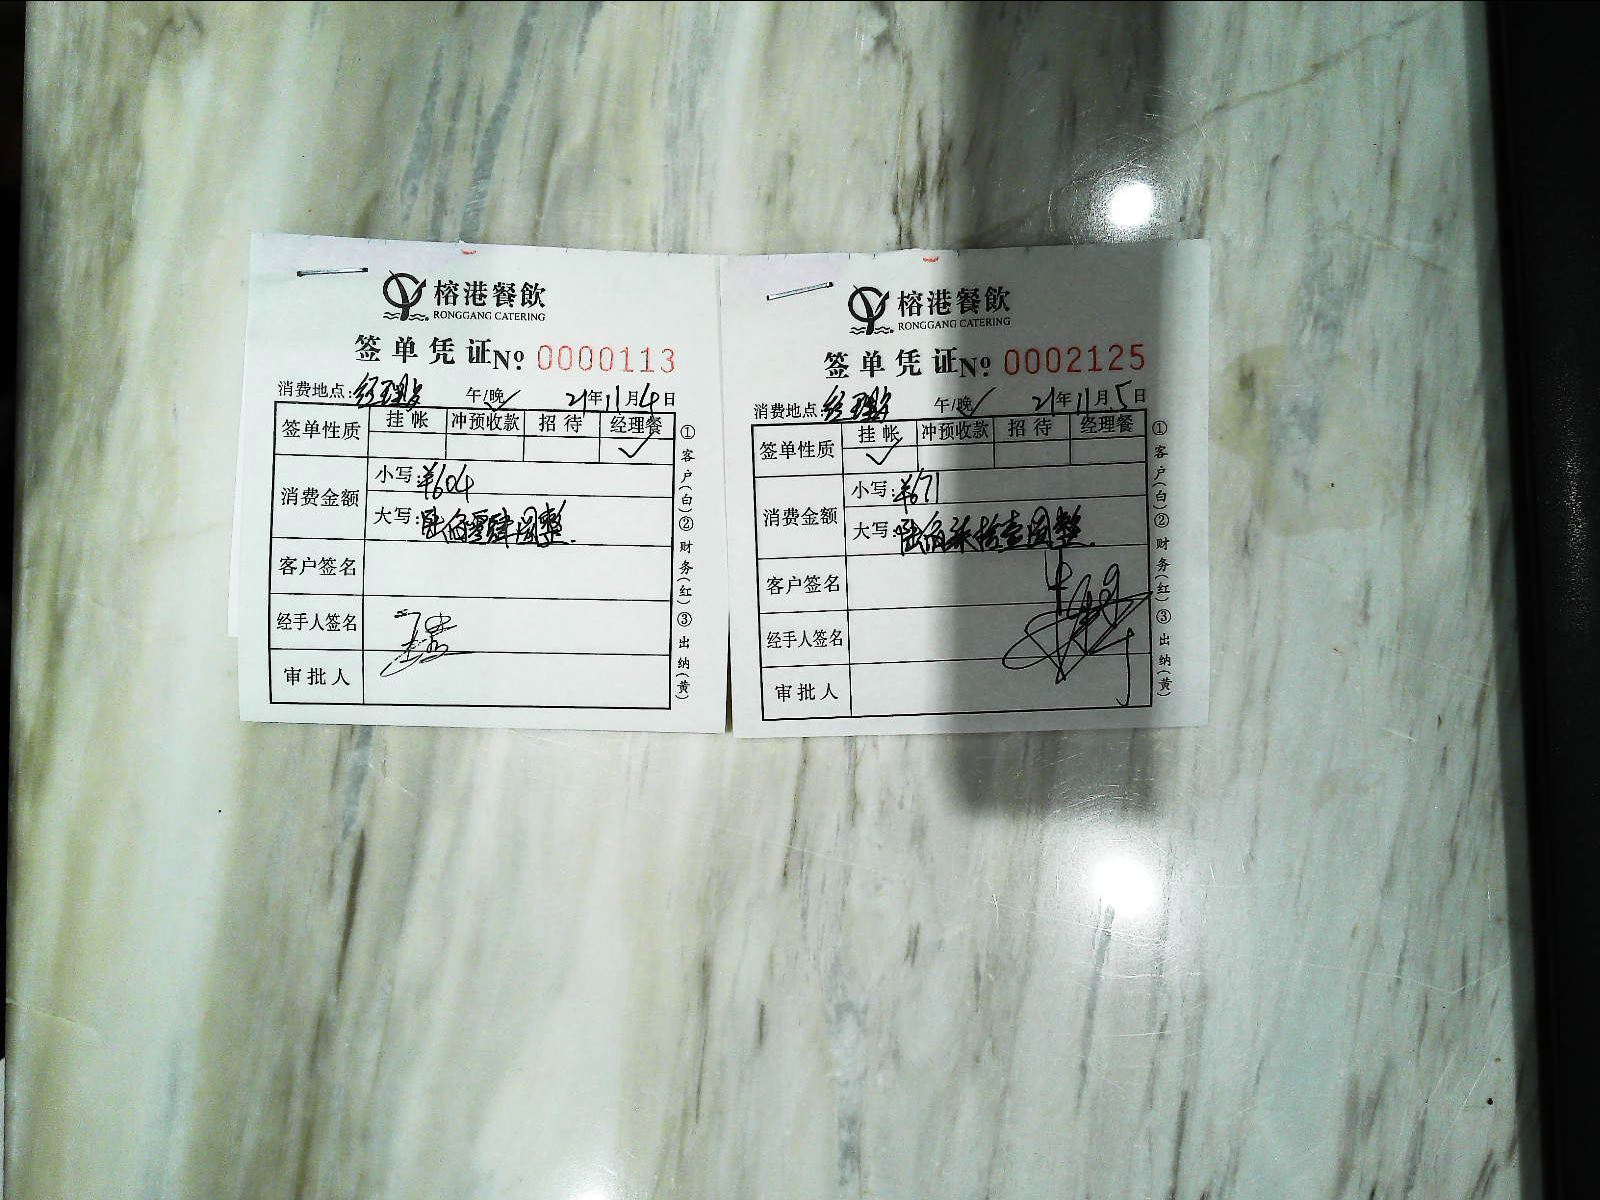 榕港餐飲
RONGGANG CATERING
签单凭证 Nº 0000113
消费地点: 经理 午/晚 21年11月4日
签单性质 挂帐 冲预收款 招待 经理餐
✓
消费金额
小写: ¥604
大写: 陆佰零肆圆整.
客户签名
经手人签名
审批人
①客户(白)②财务(红)③出纳(黄)
榕港餐飲
RONGGANG CATERING
签单凭证 Nº 0002125
消费地点: 经理 午/晚 21年11月5日
签单性质 挂帐 冲预收款 招待 经理餐
✓
消费金额
小写: ¥671
大写: 陆佰柒拾壹圆整.
客户签名
经手人签名
审批人
①客户(白)②财务(红)③出纳(黄)